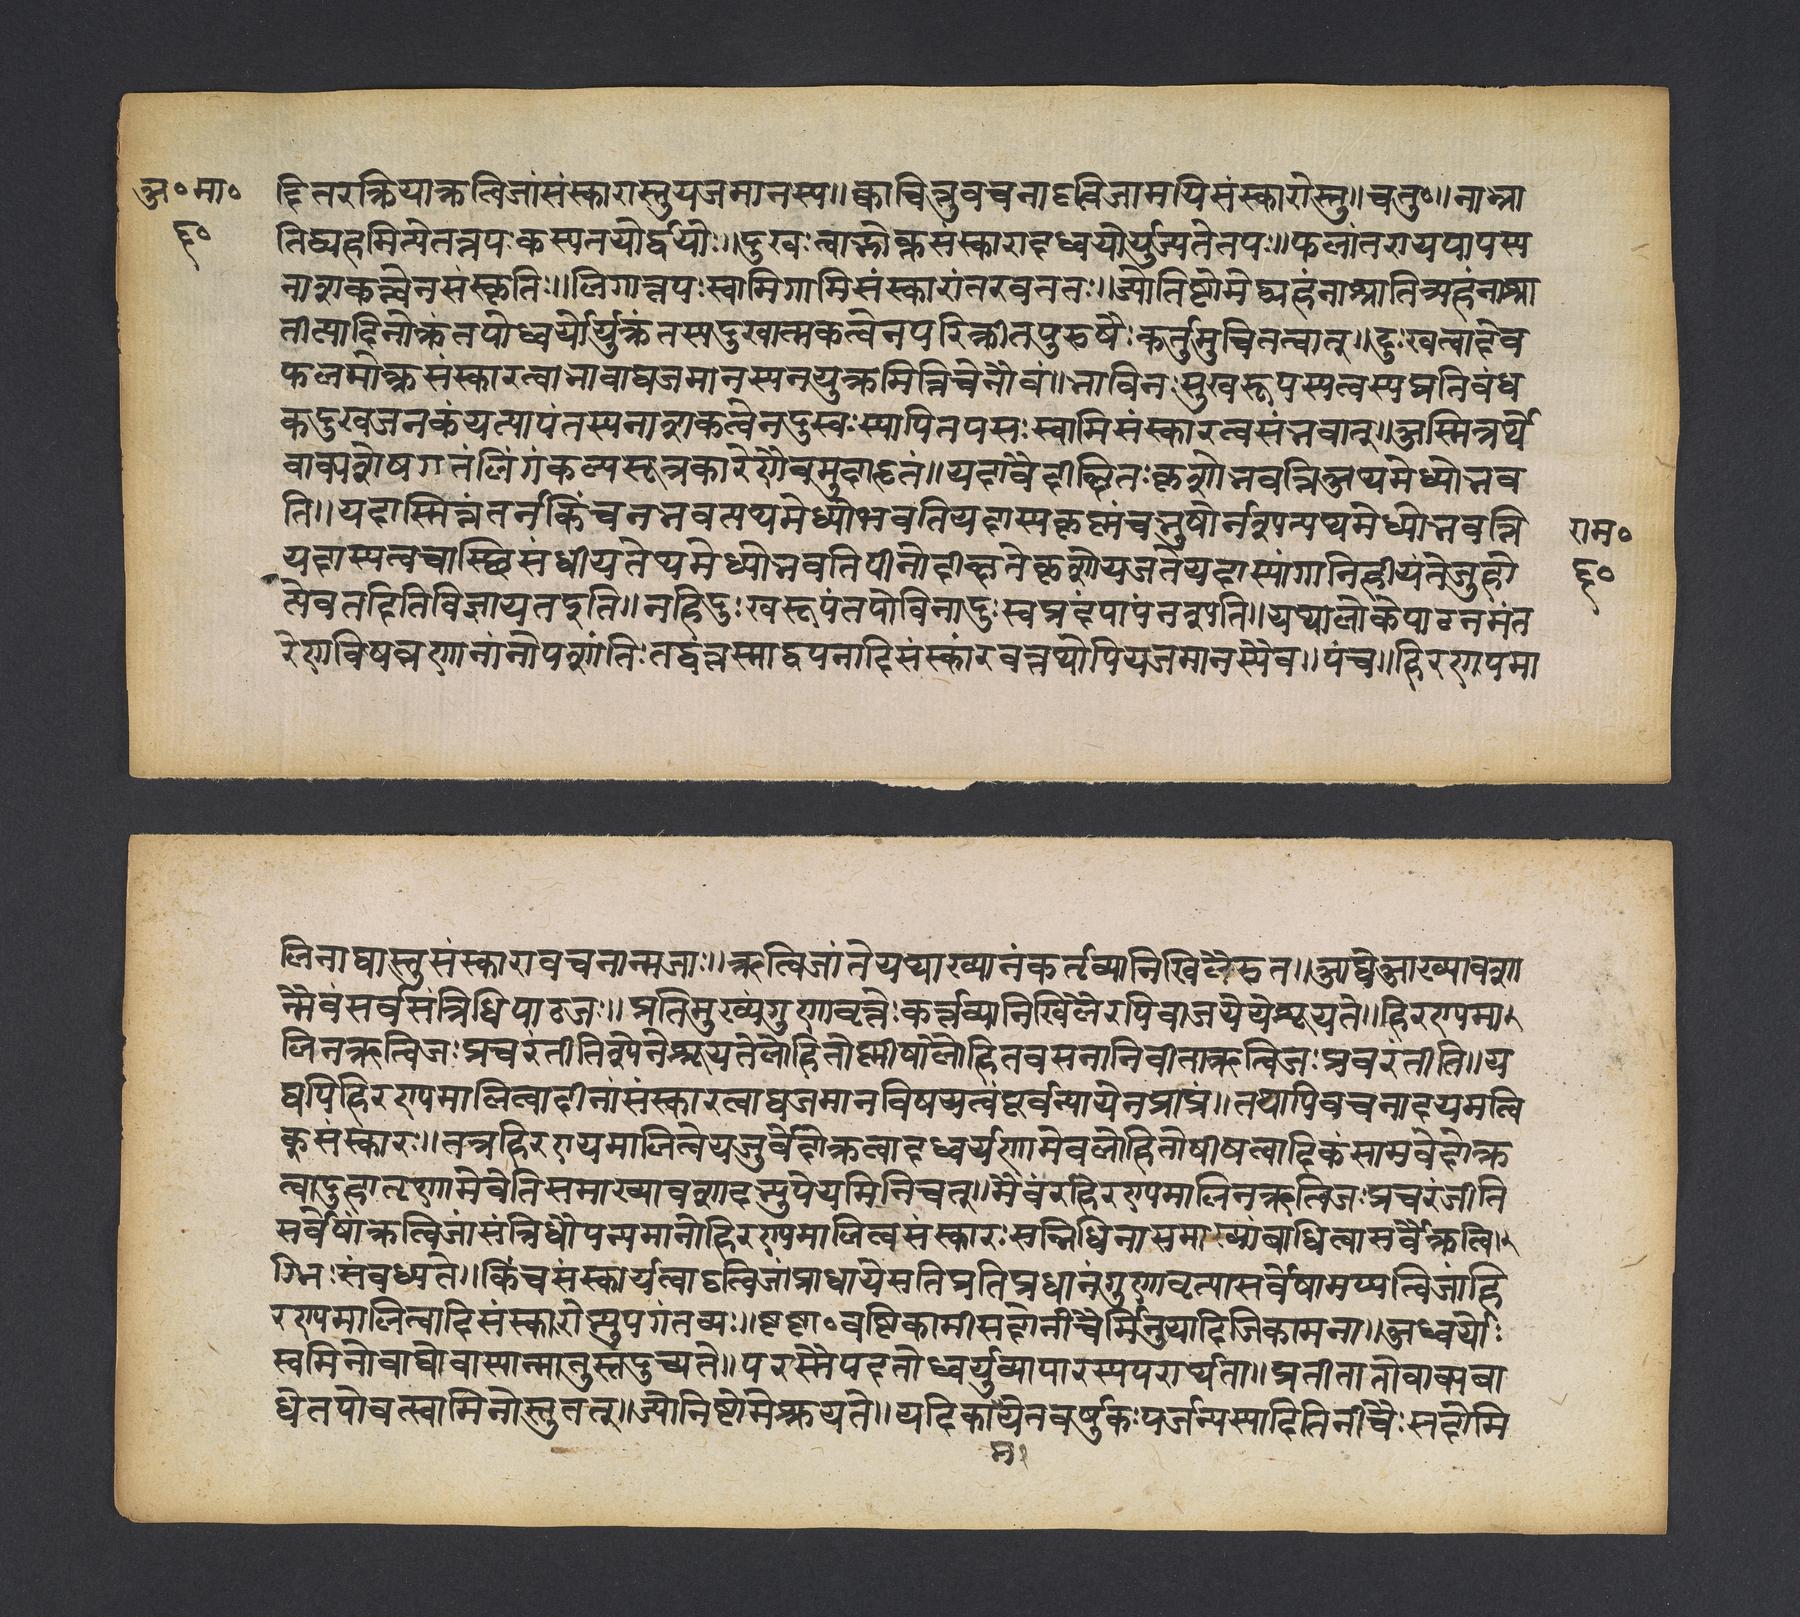 अ॰मा॰
६०
दितरक्रियाऋत्विजांसंस्कारास्तुयजमानस्य॥क्वाचित्तुवचनादृत्विजामपिसंस्कारोस्तु॥चतु॰॥नाश्ना
तिद्व्यहमित्येतत्तपःकस्यतयोर्द्वयोः॥दुखःत्वाद्भोक्तसंस्कारादध्वर्योर्युज्यतेतपः॥फलांतरायपापस्य
नाशकत्वेनसंस्कृतिः॥लिंगात्तपःस्वामिगामिसंस्कारांतरवत्ततः॥ज्योतिष्टोमेद्व्यहंनाश्नातित्र्यहंनाश्ना
तीत्यादिनोक्तंतपोध्वर्योर्युक्तंतस्यदुखात्मकत्वेनपरिक्रीतपुरुषैःकर्तुमुचितत्वात्॥दुःखत्वादेव
फलभोक्तृसंस्कारत्वाभावाद्यजमानस्यनयुक्तमितिचेन्नैवं॥भाविनःसुखरूपस्यत्वस्यप्रतिबंध
कदुखजनकंयत्पापंतस्यनाशकत्वेनदुखःस्यापितपसःस्वामिसंस्कारत्वसंभवात्॥अस्मिन्नर्थे
वाक्यशेषगतंलिंगंकल्पसूत्रकारेणैवमुदाहृतं॥यदावैदीक्षितःकृशोभवतिअथमेध्योभव
ति॥यदास्मिन्नंतर्नकिंचनभवत्यथमेध्योभवतियदास्यकृष्णंचक्षुषोर्नश्यत्यथमेध्योभवति
यदास्यत्वचास्थिसंधीयतेथमेध्योभवतिपीनोदीक्षतेकृशोयजतेयदास्यांगानिहीयंतेजुहो
त्येवतदितिविज्ञायतइति॥नहिदुःखरूपंतपोविनादुःखप्रदंपापंनश्यति॥यथालोकेपाटनमंत
रेणविषव्रणानांनोपशांतिःतद्वत्तस्माद्वपनादिसंस्कारवत्तपोपियजमानस्यैव॥पंच॥हिरण्यमा
राम॰
६०
लिनाद्यास्तुसंस्कारावचनान्मजाः॥ऋत्विजांतेयथाख्यानंकर्तव्यानिखिलैरुत॥आद्येआख्यावशा
न्मैवंसर्वसंन्निधिपाठजः॥प्रतिमुख्यंगुणावृत्तेःकर्त्तव्यानिखिलैरपिवाजपेयेश्रूयते॥हिरण्यमा
लिनऋत्विजःप्रचरंतीतिश्येनेश्रूयतेलोहितोष्णीषालोहितवसनानिवीताऋत्विजःप्रचरंतीति॥य
द्यपिहिरण्यमालित्वादीनांसंस्कारत्वाद्यजमानविषयत्वंपूर्वन्यायेनप्राप्तं॥तथापिवचनादयमृत्वि
क्संस्कारः॥तत्रहिरण्यमालित्वेयजुर्वेदोक्तत्वादध्वर्यूणामेवलोहितोष्णीषत्वादिकंसामवेदोक्त
त्वादुद्गातॄणामेवेतिसमाख्यावशादभ्युपेयमितिचेत्॥मैवंरहिरण्यमालिनऋत्विजःप्रचरंतीति
सर्वेषांऋत्विजांसंन्निधौपठ्यमानोहिरण्यमालित्वसंस्कारःसन्निधिनासमाख्यांबाधित्वासर्वैर्ऋत्वि
ग्भिःसंबध्यते॥किंचसंस्कार्यत्वादृत्विजांप्राधान्येसतिप्रतिप्रधानंगुणावृत्यासर्वेषामप्यृत्विजांहि
रण्यमालित्वादिसंस्कारोभ्युपगंतव्यः॥षष्टा॰वृष्टिकामीसदोनीचैर्मिनुयादितिकामना॥अध्वर्योः
स्वमिनोवाद्योवास्यान्मातुस्तदुच्यते॥परस्मैपदतोध्वर्युव्यापारस्यपरार्थता॥प्रतीतातोवाक्यबा
धेतपोवत्स्वामिनोस्तुतत्॥ज्योतिष्टोमेश्रूयते॥यदिकामयेतवर्षुकःपर्जन्यस्यादितिनीचैःसदोमि